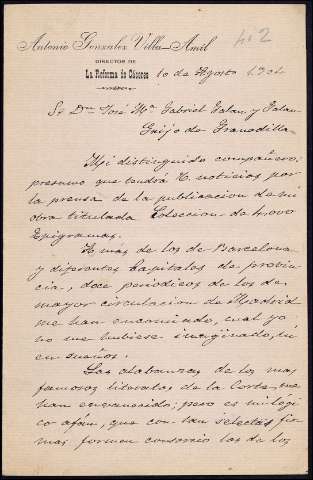 Antonio Gonzalez Villa-Amil
412
DIRECTOR DE
La Reforma de Cáceres
10 de Agosto 1904
Sr. Dn. José Mª Gabriel Galan y Galan
Guijo de Granadilla.
Mi distinguido compañero:
presumo que tendrá V. noticias por
la prensa de la publicacion de mi
obra titulada Coleccion de 4.000
Epigramas.
A más de los de Barcelona
y diferentes Capitales de provin-
cia, doce periodicos de los de
mayor circulacion de Madrid
me han encomiado, cual yo
no me hubiese imaginado, ni
en sueños.
Las alabanzas de los mas
famosos literatos de la Corte, me
han envanecido; pero es mi lógi-
co afán, que con tan selectas fir-
mas formen consorcio las de los